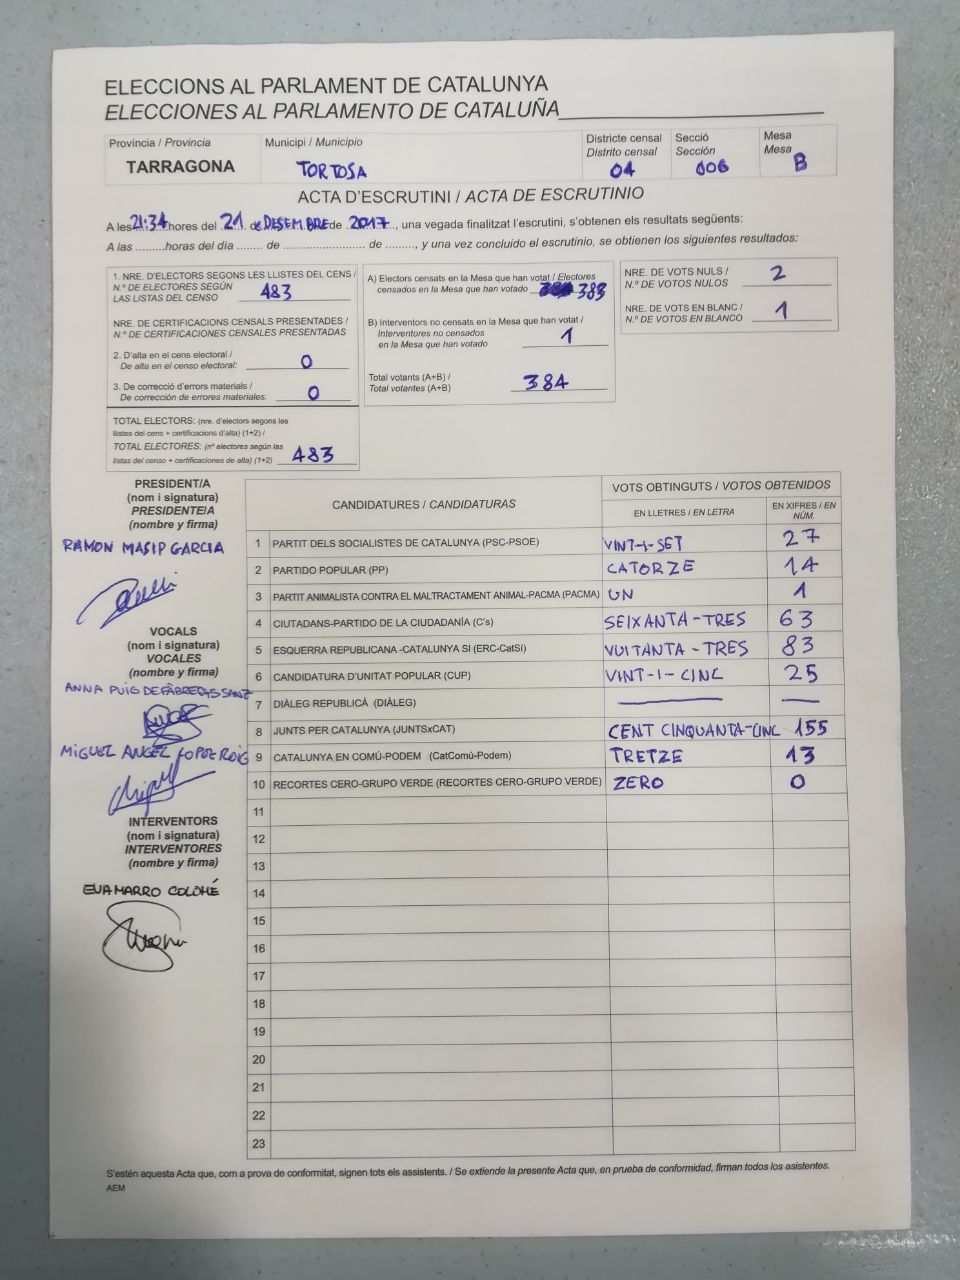 ELECCIONS AL PARLAMENT DE CATALUNYA
ELECCIONES AL PARLAMENTO DE CATALUÑA
Província / Provincia
TARRAGONA
Municipi / Municipio
TORTOSA
Districte censal
Distrito censal
04
Secció
Sección
006
Mesa
Mesa
B
ACTA D'ESCRUTINI / ACTA DE ESCRUTINIO
A les 21:34 hores del 21 de DESEMBRE de 2017, una vegada finalitzat l'escrutini, s'obtenen els resultats següents:
A las .........horas del día ........ de ......................... de ........., y una vez concluido el escrutinio, se obtienen los siguientes resultados:
1. NRE. D'ELECTORS SEGONS LES LLISTES DEL CENS /
N.º DE ELECTORES SEGÚN
LAS LISTAS DEL CENSO 483
NRE. DE CERTIFICACIONS CENSALS PRESENTADES /
N.º DE CERTIFICACIONES CENSALES PRESENTADAS
2. D'alta en el cens electoral /
De alta en el censo electoral: 0
3. De correcció d'errors materials /
De corrección de errores materiales: 0
TOTAL ELECTORS: (nre. d'electors segons les
llistes del cens + certificacions d'alta) (1+2) /
TOTAL ELECTORES: (nº electores según las
listas del censo + certificaciones de alta) (1+2) 483
A) Electors censats en la Mesa que han votat / Electores
censados en la Mesa que han votado 383
B) Interventors no censats en la Mesa que han votat /
Interventores no censados
en la Mesa que han votado 1
Total votants (A+B) /
Total votantes (A+B) 384
NRE. DE VOTS NULS /
N.º DE VOTOS NULOS 2
NRE. DE VOTS EN BLANC /
N.º DE VOTOS EN BLANCO 1
PRESIDENT/A
(nom i signatura)
PRESIDENTE/A
(nombre y firma)
RAMON MASIP GARCIA
VOCALS
(nom i signatura)
VOCALES
(nombre y firma)
ANNA PUIG DEFÀBREGAS SANZ
MIGUEL ANGEL LOPEZ ROIG
INTERVENTORS
(nom i signatura)
INTERVENTORES
(nombre y firma)
EVA MARRO COLOMÉ
CANDIDATURES / CANDIDATURAS
VOTS OBTINGUTS / VOTOS OBTENIDOS
EN LLETRES / EN LETRA
EN XIFRES / EN NÚM.
1 PARTIT DELS SOCIALISTES DE CATALUNYA (PSC-PSOE) VINT-I-SET 27
2 PARTIDO POPULAR (PP) CATORZE 14
3 PARTIT ANIMALISTA CONTRA EL MALTRACTAMENT ANIMAL-PACMA (PACMA) UN 1
4 CIUTADANS-PARTIDO DE LA CIUDADANÍA (C's) SEIXANTA-TRES 63
5 ESQUERRA REPUBLICANA -CATALUNYA SI (ERC-CatSí) VUITANTA-TRES 83
6 CANDIDATURA D'UNITAT POPULAR (CUP) VINT-I-CINC 25
7 DIÀLEG REPUBLICÀ (DIÀLEG)
8 JUNTS PER CATALUNYA (JUNTSxCAT) CENT CINQUANTA-CINC 155
9 CATALUNYA EN COMÚ-PODEM (CatComú-Podem) TRETZE 13
10 RECORTES CERO-GRUPO VERDE (RECORTES CERO-GRUPO VERDE) ZERO 0
11
12
13
14
15
16
17
18
19
20
21
22
23
S'estén aquesta Acta que, com a prova de conformitat, signen tots els assistents. / Se extiende la presente Acta que, en prueba de conformidad, firman todos los asistentes.
AEM